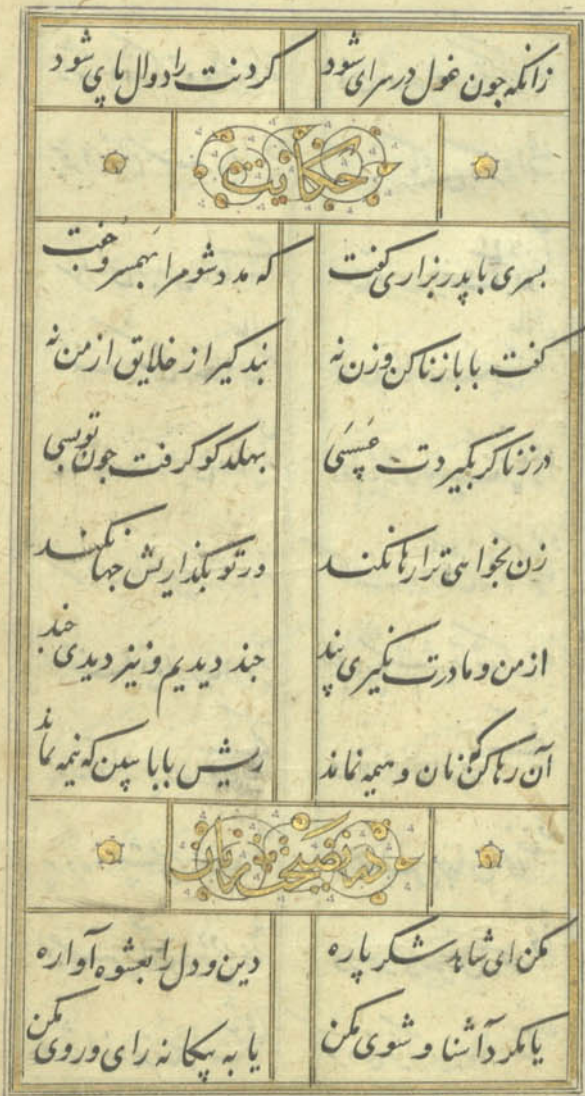 زانکه جون غول در سرای شود کردنت را دوال پای شود
حکایت
بسری با پدر بزاری کفت که مدد شو مرا بهمسر و جفت
کفت بابا زنا کن و زن نه بند کیر از خلایق از من نه
در زنا کر بکیردت عسسی بهلد کو کرفت جون تو بسی
زن بخواهی ترا رها نکند ور تو بکذاریش جها نکند
از من و مادرت نکیری بند جند دیدیم و نیز دیدی جند
آن رها کن که نان و هیمه نماند ریش بابا ببین که نیمه نماند
در نصیحت زنان
مکن ای شاهد شکر پاره دین و دل را بعشوه آواره
یا مکرد آشنا و شوی مکن یا به بیکانه رای و روی مکن